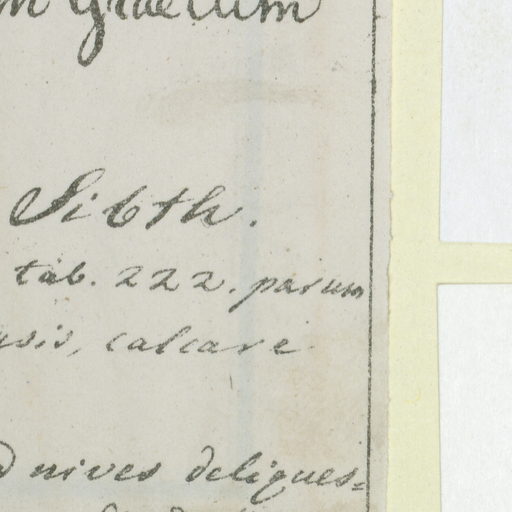 Graecum
Sibth.
tab. 222. parum
calcare
nives deliques=